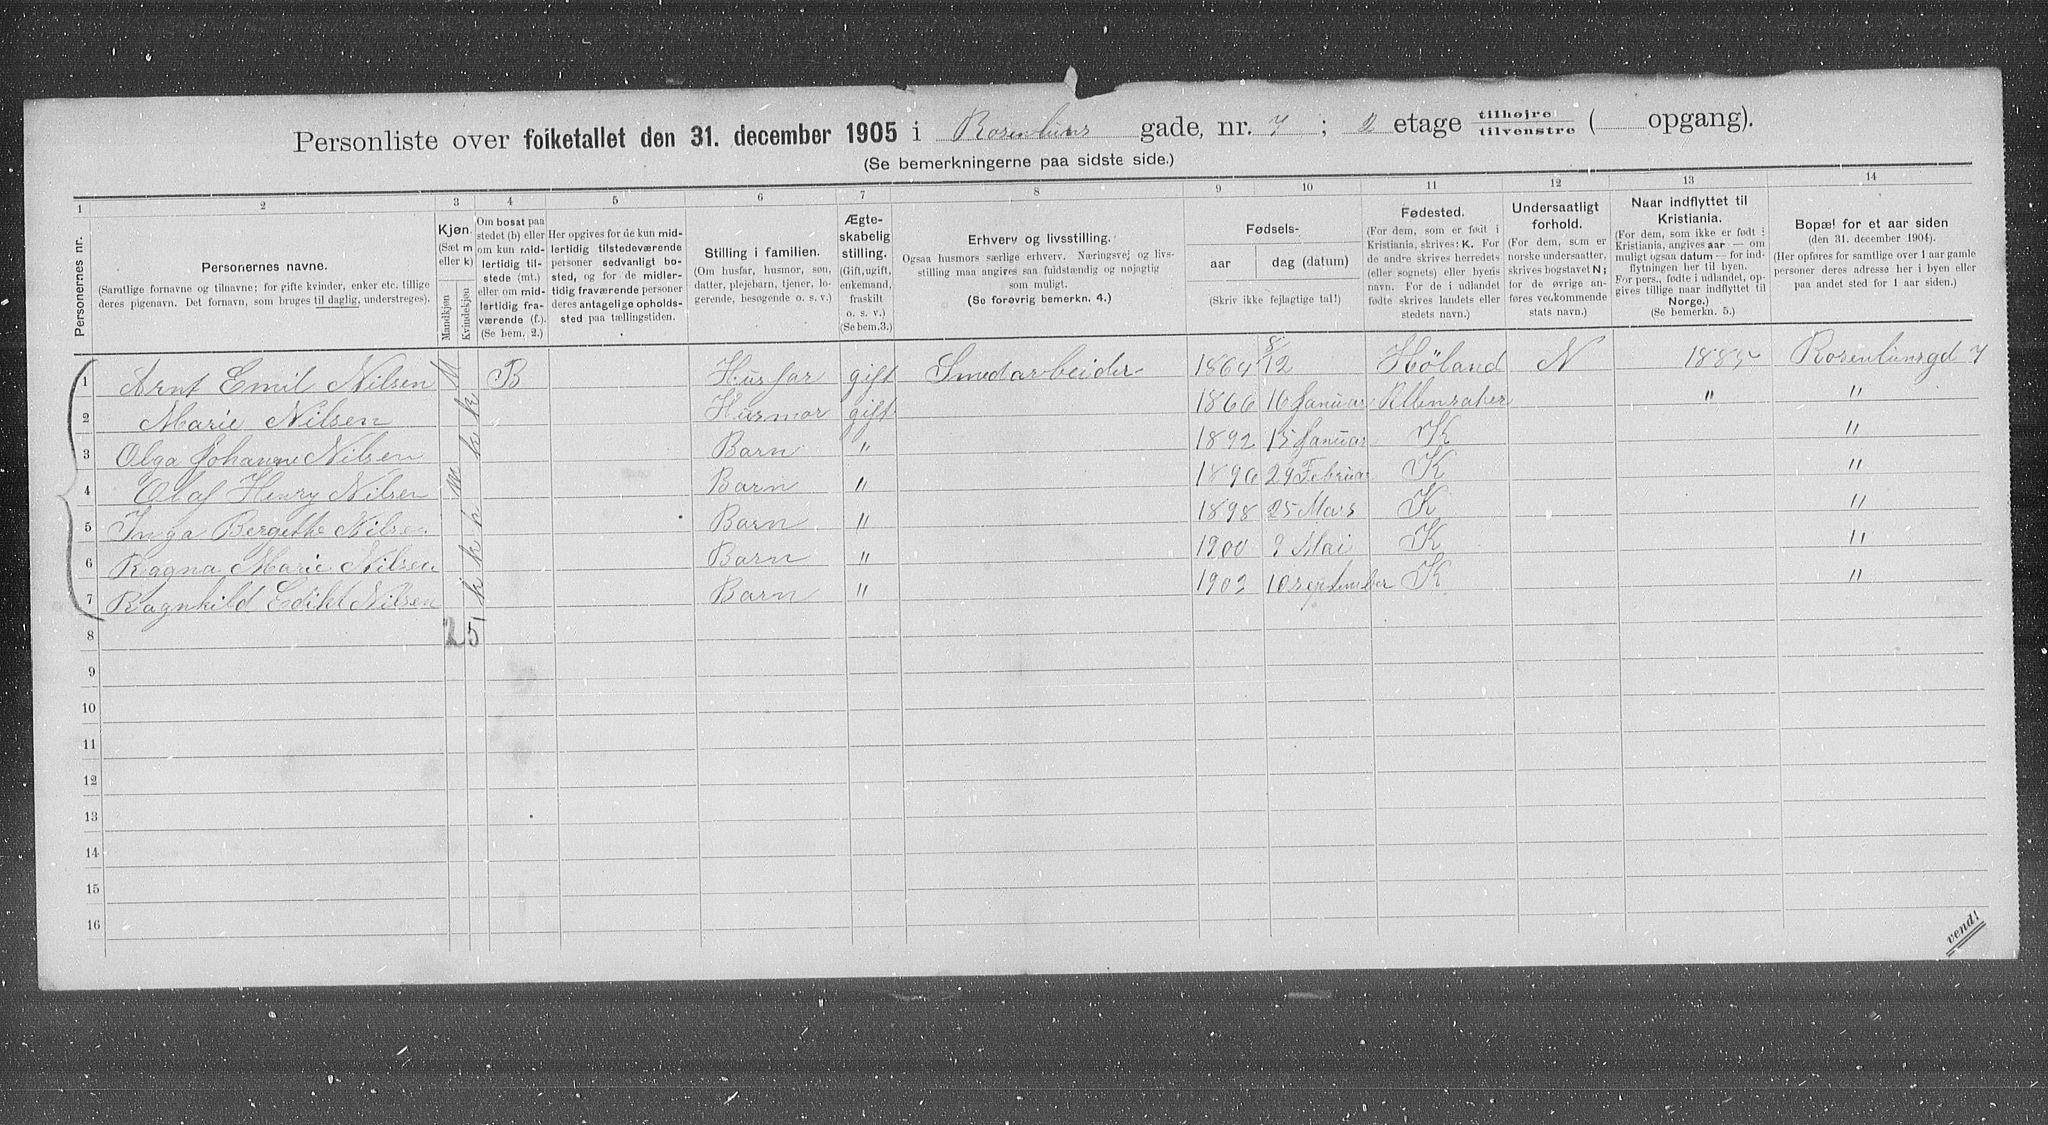 Personliste over folketallet den 31. december 1905 i Rosenluns gade, nr. 7 ; 2 etage tilhøjre tilvenstre ( opgang).
(Se bemerkningerne paa sidste side.)
1 2 3 4 5 6 7 8 9 10 11 12 13 14
Personernes nr.
Personernes navne.
(Samtlige fornavne og tilnavne; for gifte kvinder, enker etc. tillige
deres pigenavn. Det fornavn, som bruges til daglig, understreges).
Kjøn.
(Sæt m
eller k)
Mandkjøn
Kvindekjøn
Om bosat paa
stedet (b) eller
om kun mid-
lertidig til-
stede (mt.)
eller om mid-
lertidig fra-
værende (f.).
(Se bem. 2.)
Her opgives for de kun mid-
lertidig tilstedeværende
personer sedvanligt bo-
sted, og for de midler-
tidig fraværende personer
deres antagelige opholds-
sted paa tællingstiden.
Stilling i familien.
(Om husfar, husmor, søn,
datter, plejebarn, tjener, lo-
gerende, besøgende o. s. v.)
Ægte-
skabelig
stilling.
(Gift, ugift,
enkemand,
fraskilt
o. s. v.)
(Se bem.3.)
Erhverv og livsstilling.
Ogsaa husmors særlige erhverv. Næringsvej og livs-
stilling maa angives saa fuldstændig og nøjagtig
som muligt.
(Se forøvrig bemerkn. 4.)
Fødsels-
aar
dag (datum)
(Skriv ikke fejlagtige tal!)
Fødested.
(For dem, som er født i
Kristiania, skrives: K. For
de andre skrives herredets
(eller sognets) eller byens
navn. For de i udlandet
fødte skrives landets eller
stedets navn.)
Undersaatligt
forhold.
(For dem, som er
norske undersaatter,
skrives bogstavet N;
for de øvrige an-
føres vedkommende
stats navn.)
Naar indflyttet til
Kristiania.
(For dem, som ikke er født i
Kristiania, angives aar — om
muligt ogsaa datum — for ind-
flytningen her til byen.
For pers., fødte i udlandet, op-
gives tillige naar indflyttet til
Norge.)
(Se bemerkn. 5.)
Bopæl for et aar siden
(den 31. december 1904).
(Her opføres for samtlige over 1 aar gamle
personer deres adresse her i byen eller
paa andet sted for 1 aar siden.)
1 Arnt Emil Nilsen M B Husfar gift Smedarbeider 1864 8/12 Høland N Rosenlunsgd 7
2 Marie Nilsen k Husmor gift 1866 10 Januar " "
3 Olga Johanne Nilsen k Barn " 1892 15 Januar K "
4 Olaf Henry Nilsen m Barn " 1896 29 Februar K "
5 Inga Bergette Nilsen k Barn " 1898 25 Mars K "
6 Ragna Marie Nilsen k Barn " 1900 9 Mai K "
7 Ragnhild Ediht Nilsen k Barn " 1902 10 september K "
8 2 5
9
10
11
12
13
14
15
16
vend!